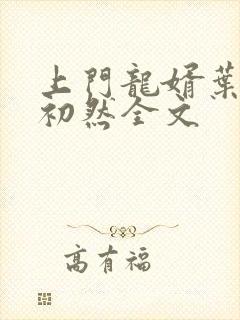 上門龍婿葉
初然全文
高有福